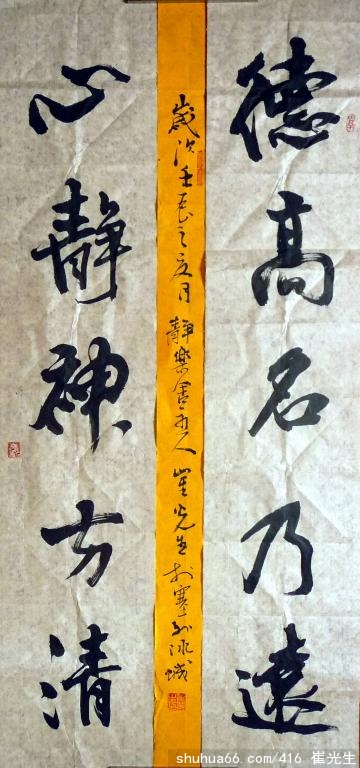 德高名乃遠
歲次壬 之夏月 靜樂 主人 崔光生 於寒 冰城
心靜神方清
shuhua66.com/416 崔光生